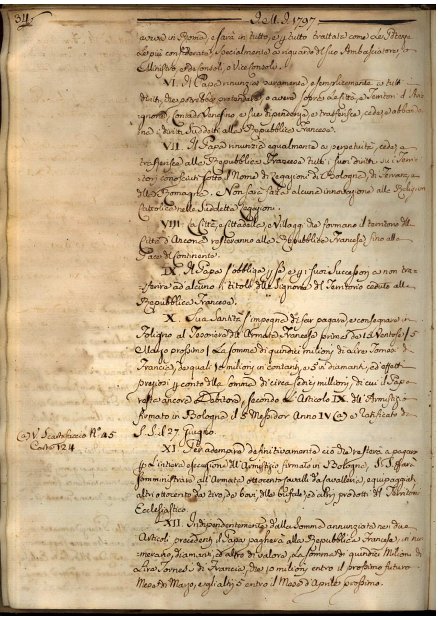 314
1797
avere in Roma, e sarà in tutto, e per tutto trattata come le Potenze
le più considerate, specialmente a riguardo del suo Ambasciatore, o
Ministro, e de Consoli, o Vice Consoli.
VI. Il Papa rinunzia puramente, e semplicemente a tutti
diritti, che potrebbe pretendere, o avere sopra la Città, e Territori d'Av
ignone, Contado Venesino, e sue dipendenze, e trasferisce, cede, e abban
dona i diritti suddetti alla Repubblica Francese.
VII. Il Papa rinunzia egualmente a perpetuità, cede, e
trasferisce alla Repubblica Francese tutti i suoi diritti su i Terri
tori conosciuti sotto il Nome di Legazioni di Bologna, di Ferrara, e
della Romagna. Non sarà fatta alcuna innovazione alla Religion
Cattolica nelle suddette Legazioni.
VIII. La Città, Cittadella, e Villaggi che formano il territorio della
Città d'Ancona resteranno alla Repubblica Francese, fino alla
Pace del Continente.
IX. Il Papa s'obbliga per se, e per i suoi Successori a non tra
sferire ad alcuno i titoli della Signoria del Territorio ceduto alla
Repubblica Francese.
X. Sua Santità s'impegna di far pagare, e consegnare in
Foligno al Tesoriere dell'Armata Francese prima de 15 Ventoso (5
Marzo prossimo) La somma di quindici milioni di Lire Tornesi di
Francia, de quali 10 milioni in contanti, e 5 in diamanti, ed effetti
preziosi per conto della somma di circa sedici milioni, di cui il Papa
resta ancora Debitore, secondo l'Articolo IX. dell'Armistizio
firmato in Bologna il 5 Messidor Anno IV (a) e Ratificato da
S. S. il 27 Giugno.
(a) V. Scartafaccio N.° 45
Carte 124
XI. Per adempire definitivamente ciò che resterà a pagare
per la intiera esecuzione dell'Armistizio firmato in Bologna, S. S. farà
somministrare all'Armata ottocento cavalli da cavalleria, equipaggiati,
altri ottocento da tiro, de bovi, delle bufale, e altri prodotti del Territorio
Ecclesiastico.
XII. Indipendentemente dalla Somma annunziata nei due
Articoli precedenti il Papa pagherà alla Repubblica Francese, in nu
merario, diamanti, ed altro di valore, La somma di quindici Milioni di
Lire Tornesi di Francia, de 10 milioni entro il prossimo futuro
Mese di Marzo, e gli altri 5 entro il Mese d'Aprile prossimo.